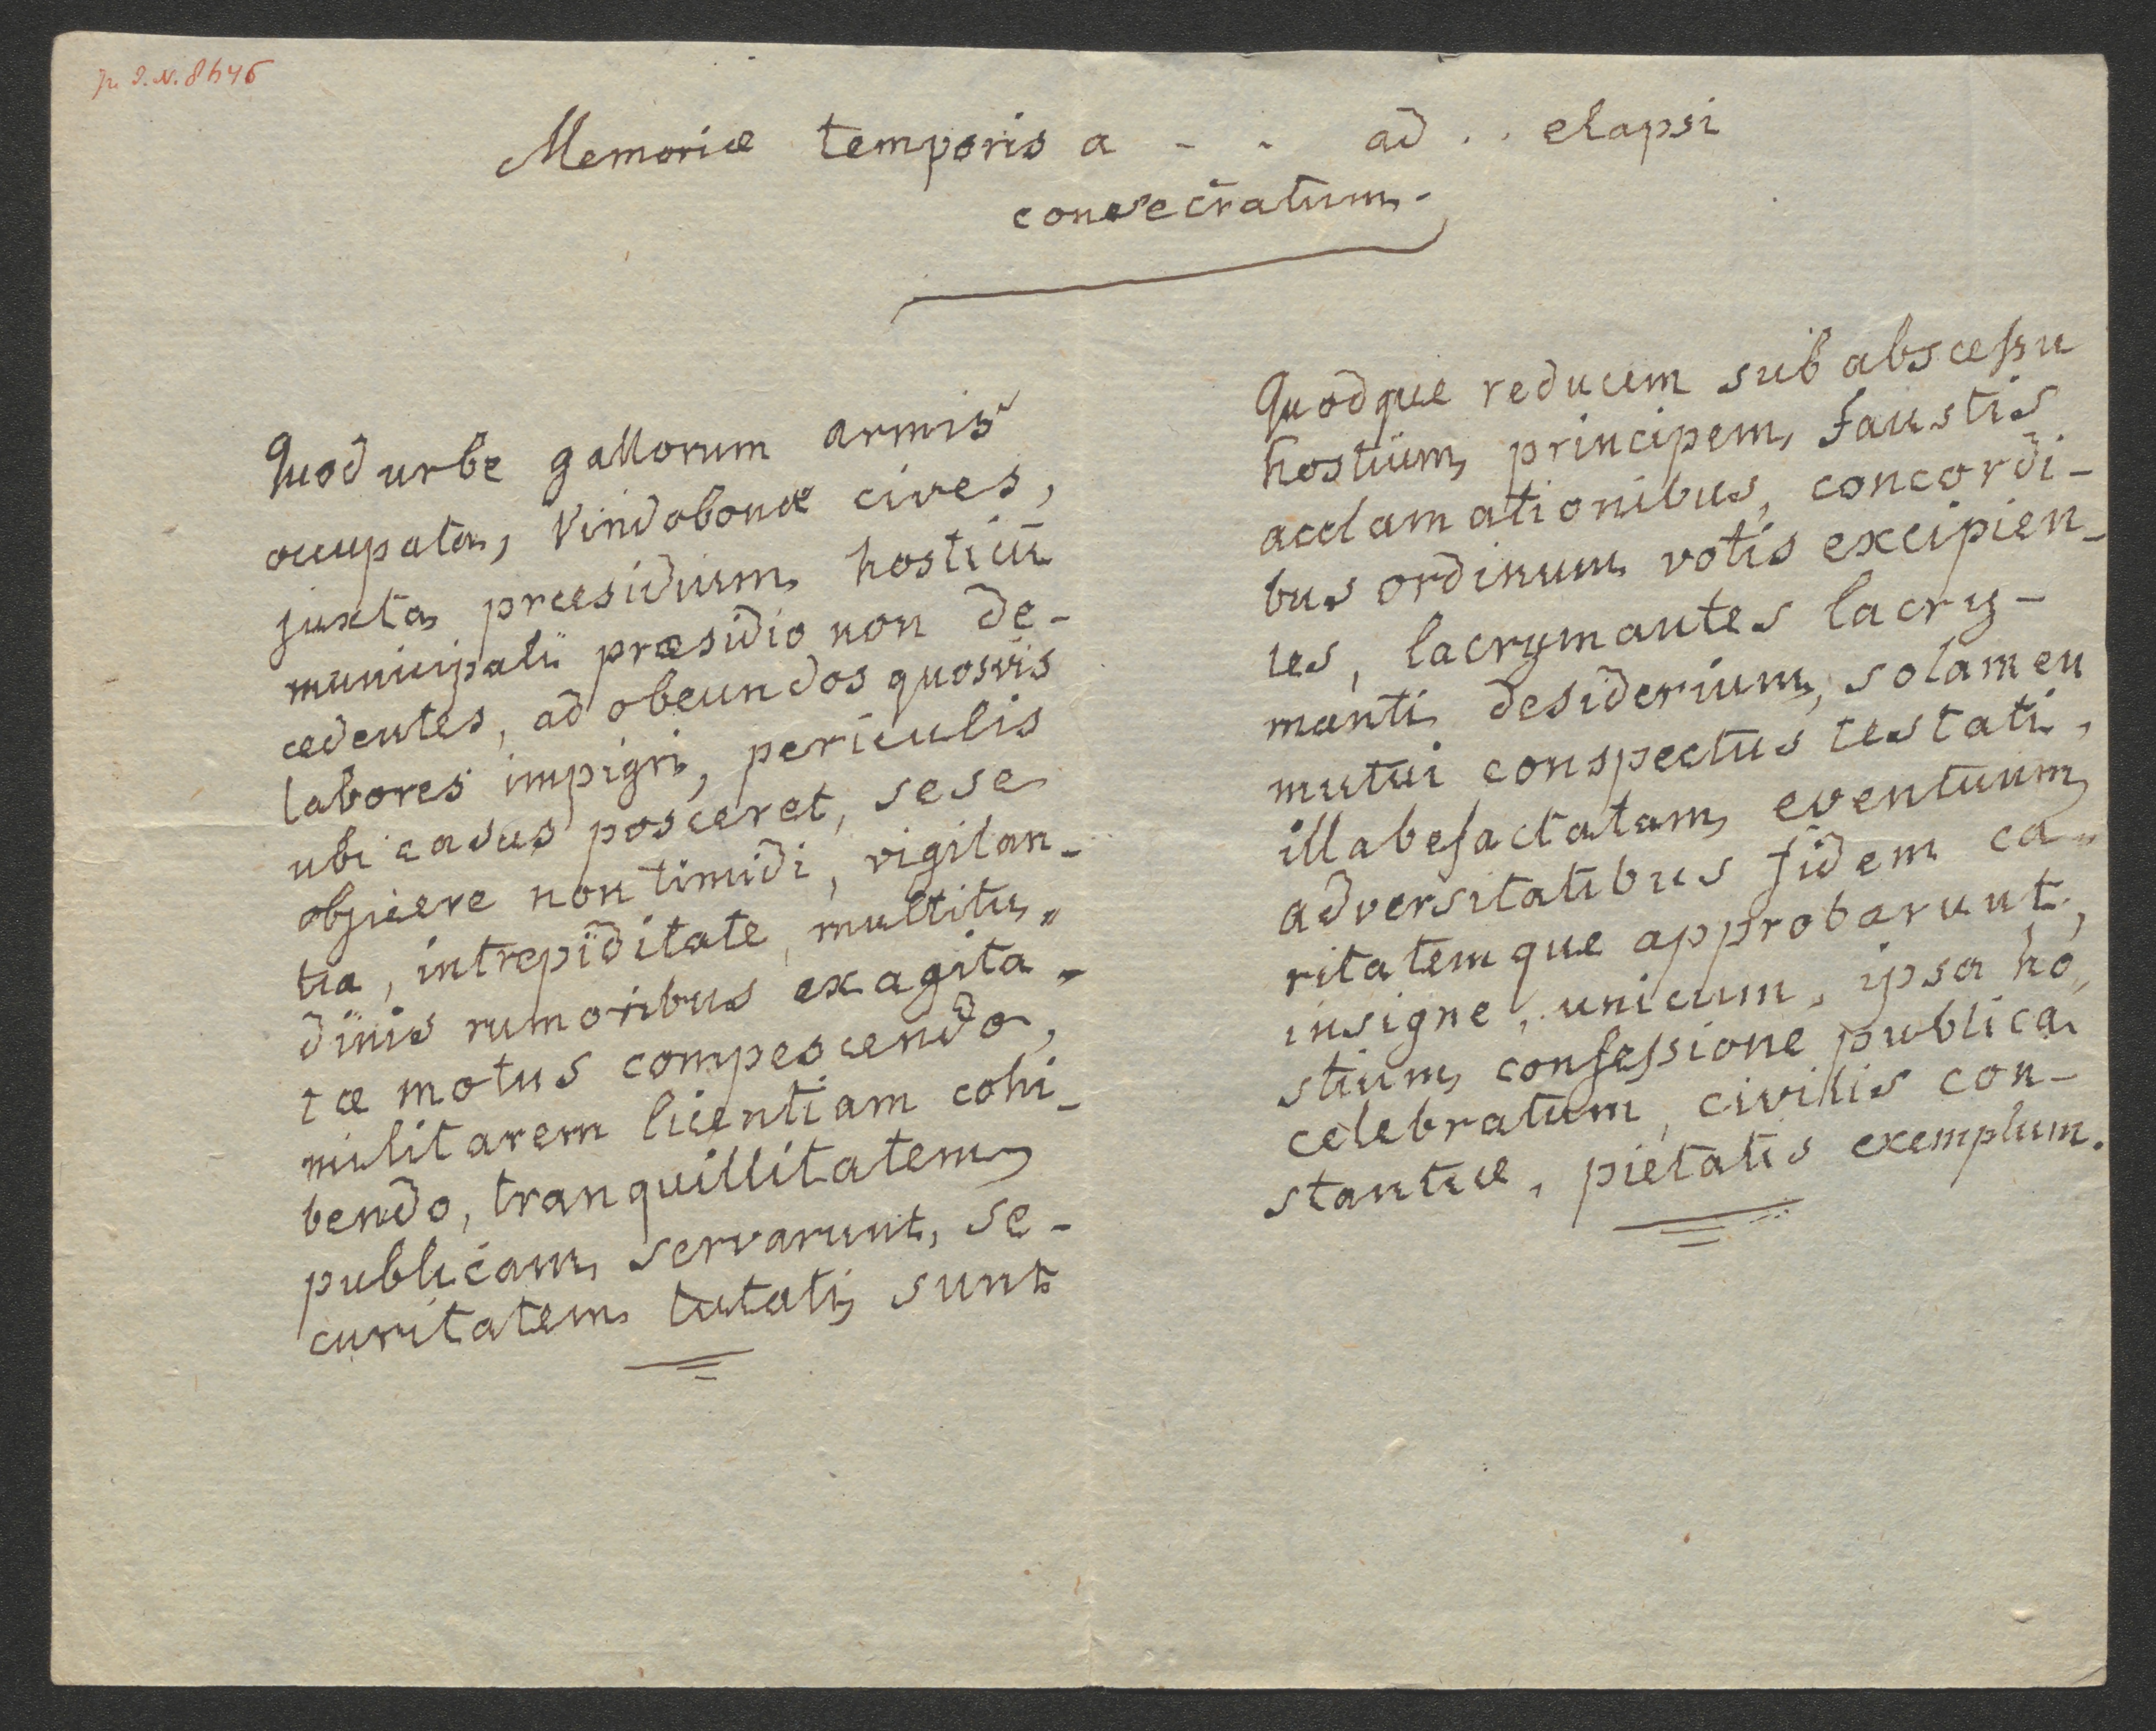 Memoriæ temporis a - - ad . . elapsi
consecratum.
Quod urbe gallorum armis
occupata, Vindobonæ cives,
juxta præsidium hostiū
municipali præsidio non de-
cedentes, ad obeundos quosvis
labores impigri, periculis
ubi casus posceret, sese
objicere non timidi, vigilan-
tia, intrepiditate, multitu„
dinis rumoribus exagita-
tæ motus compescendo,
militarem licentiam cohi-
bendo, tranquillitatem
publicam servarunt, se-
curitatem tutati sunt
Quodque reducem sub abscessu
hostium principem, faustis
acclamationibus, concordi-
bus ordinum votis excipien-
tes, lacrymantes lacry-
manti desiderium, solamen
mutui conspectus testati,
illabefactatam eventuum
adversitatibus fidem ca„
ritatemque approbarunt,
insigne, unicum, ipsa ho„
stium confessione publica
celebratum, civilis con-
stantiæ, pietatis exemplum.